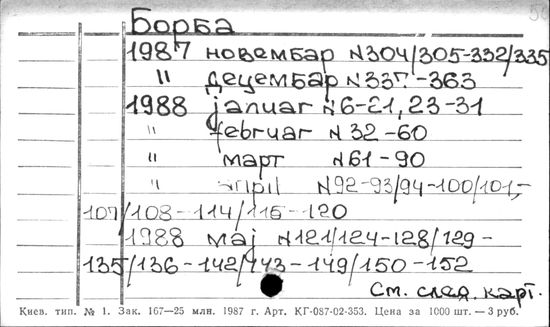 Борба
1987 новембар N304/305-332/335
" децембар N337-363
1988 јануар N6-21, 23-31
" februar N 32-60
" март N61-90
" april N92-93/94-100/101,-
107/108-114/115-120
1988 мај N121/124-128/129-
135/136-142/143-149/150-152
См. след. карт.
Киев. тип. № 1. Зак. 167—25 млн. 1987 г. Арт. КГ-087-02-353. Цена за 1000 шт. — 3 руб.